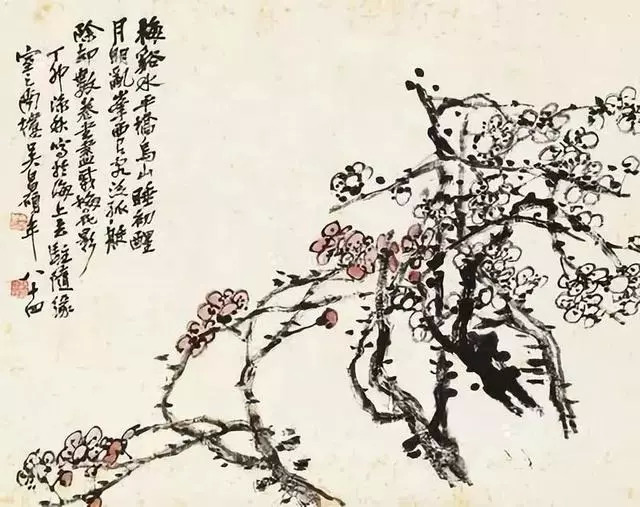 梅谿水平橋烏山睡初醒
月明亂峯西有客泛孤艇
除却數卷書盡載梅花影
丁卯深秋寫於海上去駐隨緣
室之南樓吳昌碩年八十四